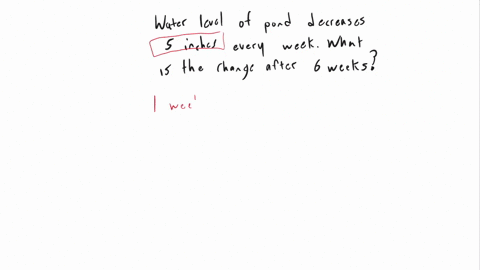 Water level of pond decreases
5 inches every week. What
is the change after 6 weeks?
1 wee